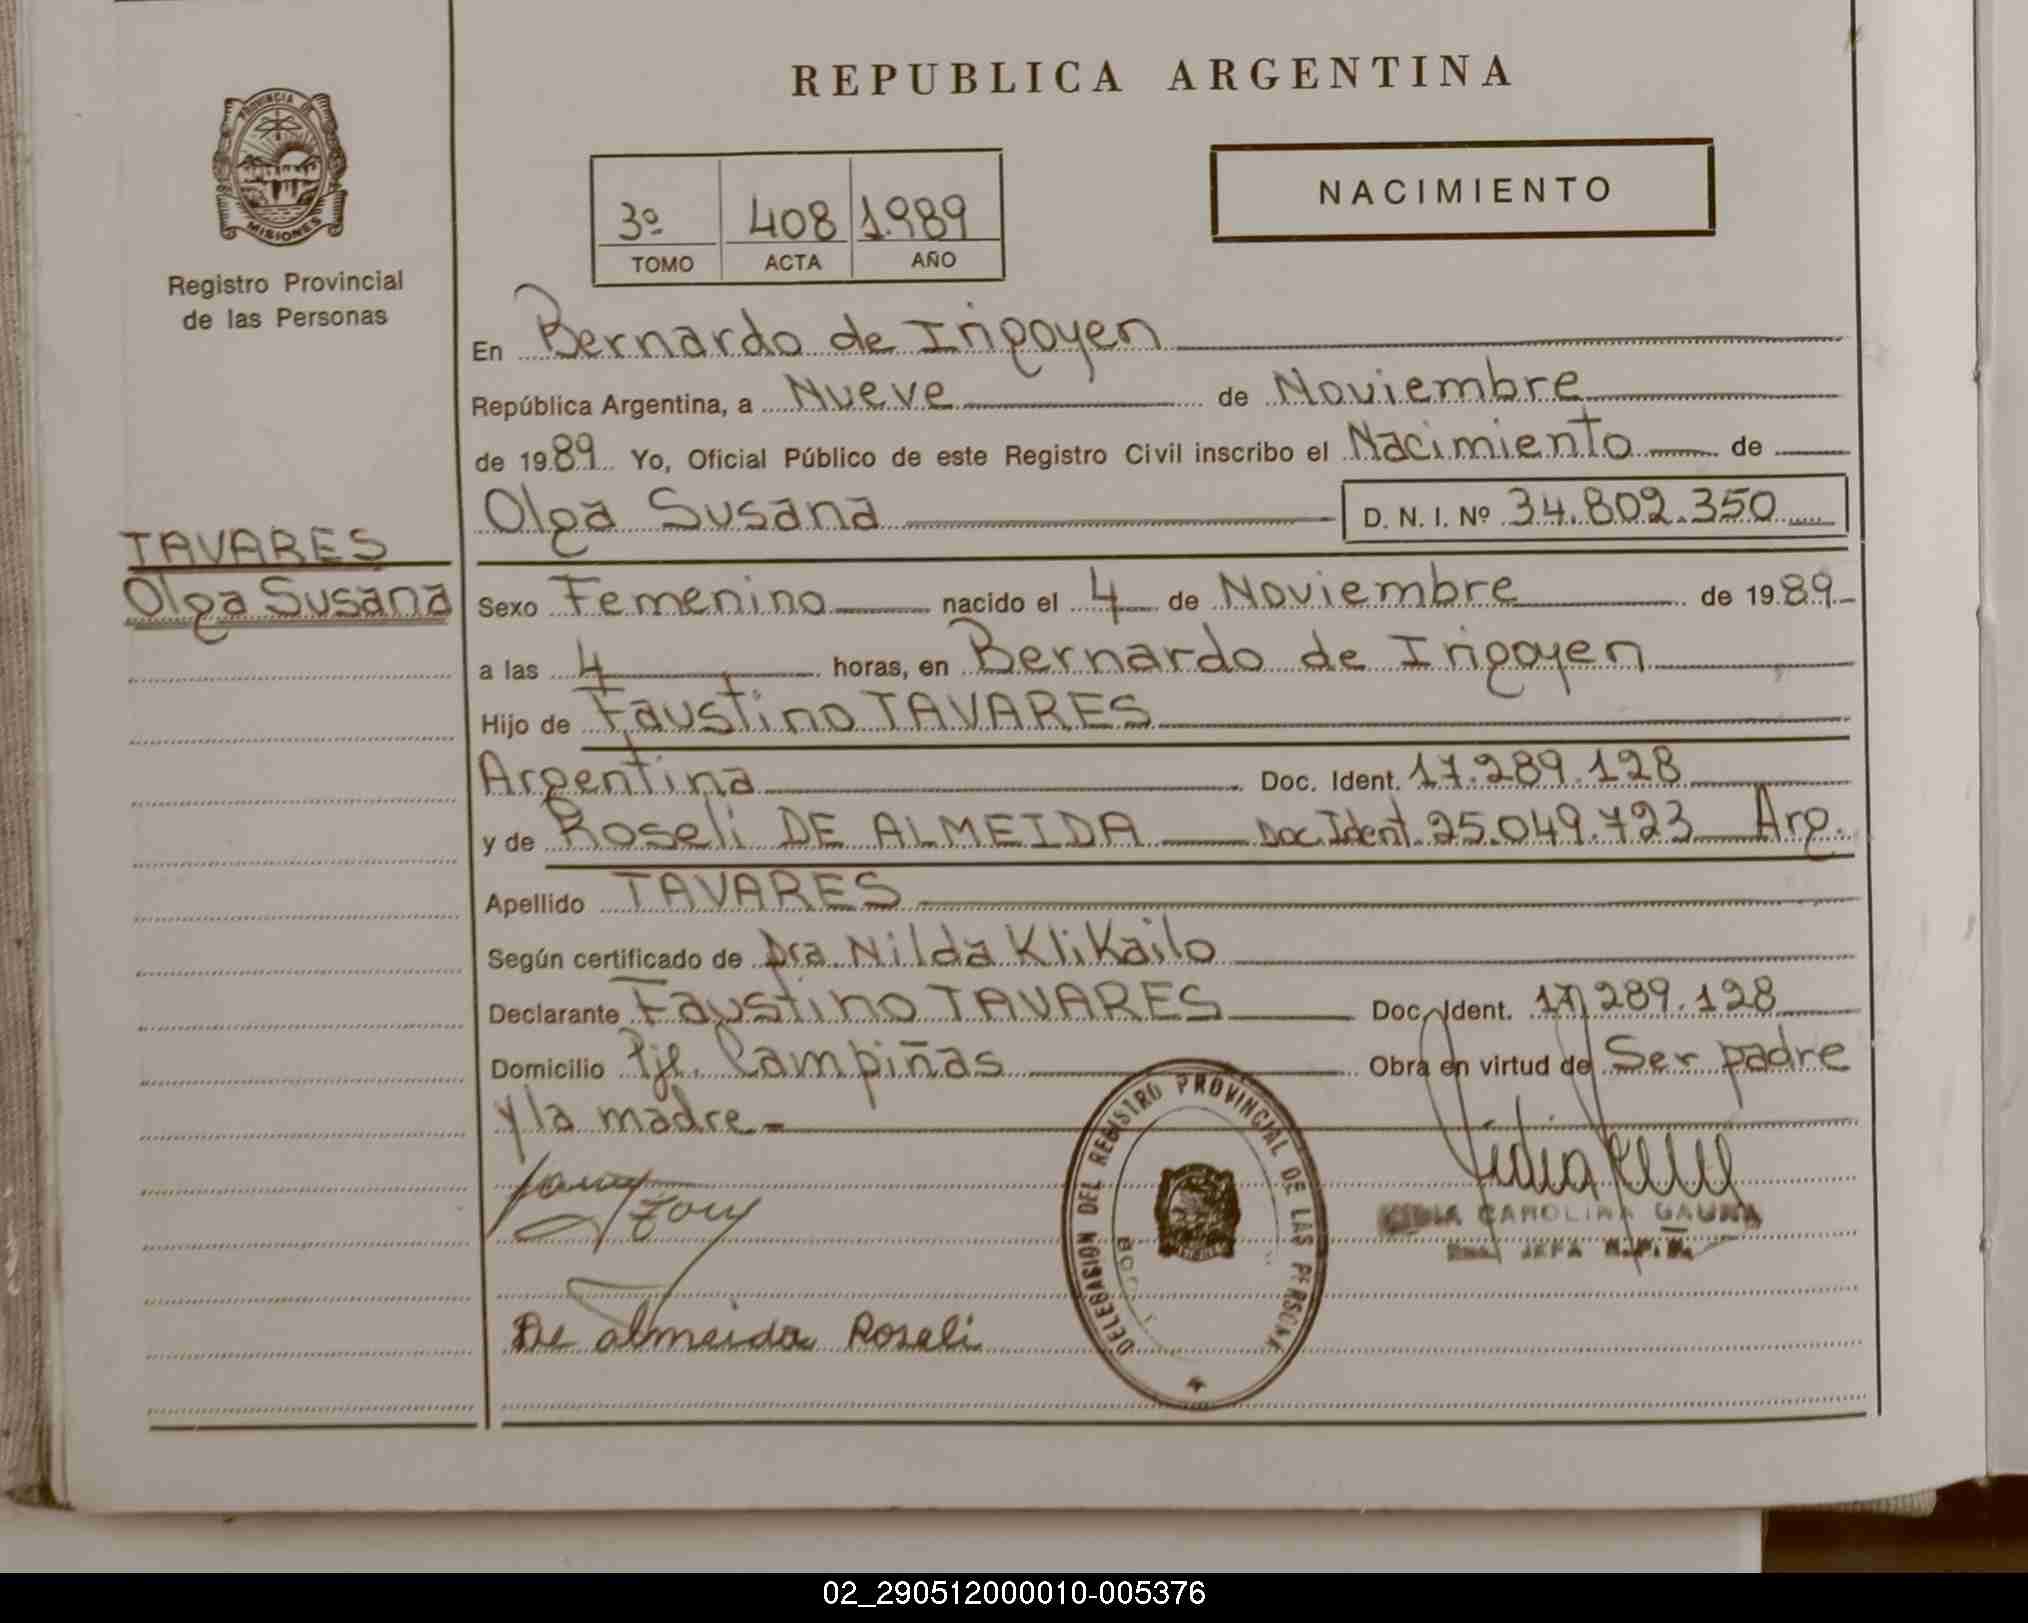 REPUBLICA ARGENTINA
PROVINCIA DE
MISIONES
Registro Provincial
de las Personas
NACIMIENTO
3º 408 1.989
TOMO ACTA AÑO
En Bernardo de Irigoyen
República Argentina, a Nueve de Noviembre
de 1989 Yo, Oficial Público de este Registro Civil inscribo el Nacimiento de
Olga Susana D. N. I. Nº 34.802.350
TAVARES
Olga Susana
Sexo Femenino nacido el 4 de Noviembre de 1989
a las 4 horas, en Bernardo de Irigoyen
Hijo de Faustino TAVARES
Argentina Doc. Ident. 17.289.128
y de Roseli DE ALMEIDA Doc. Ident. 25.049.723 Arg.
Apellido TAVARES
Según certificado de Dra. Nilda Klikailo
Declarante Faustino TAVARES Doc. Ident. 17.289.128
Domicilio Pje. Campiñas Obra en virtud de Ser padre
y la madre
DELEGACION DEL REGISTRO PROVINCIAL DE LAS PERSONAS
CAROLINA GAUNA
JEFA
De almeida Roseli
02_290512000010-005376